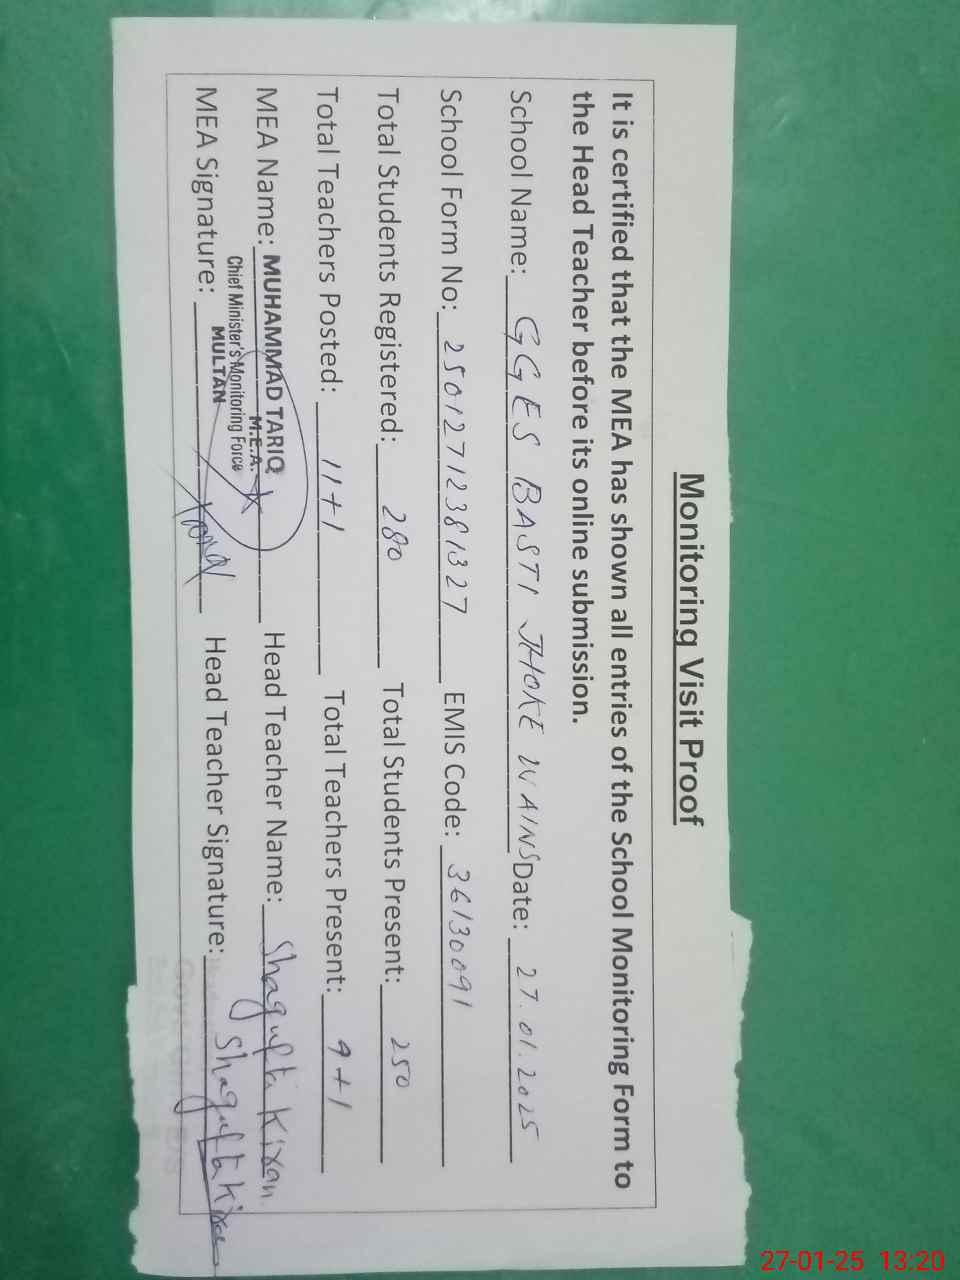 Monitoring Visit Proof
It is certified that the MEA has shown all entries of the School Monitoring Form to
the Head Teacher before its online submission.
School Name: GGES BASTI JHOKE WAINS Date: 27.01.2025
School Form No: 25012712381327 EMIS Code: 36130091
Total Students Registered: 280 Total Students Present: 250
Total Teachers Posted: 11+1 Total Teachers Present: 9+1
MEA Name: MUHAMMAD TARIQ Head Teacher Name: Shagufta Kiran
M.E.A.
Chief Minister's Monitoring Force
MULTAN
MEA Signature: Head Teacher Signature: Shagufta Kiran
27-01-25 13:20